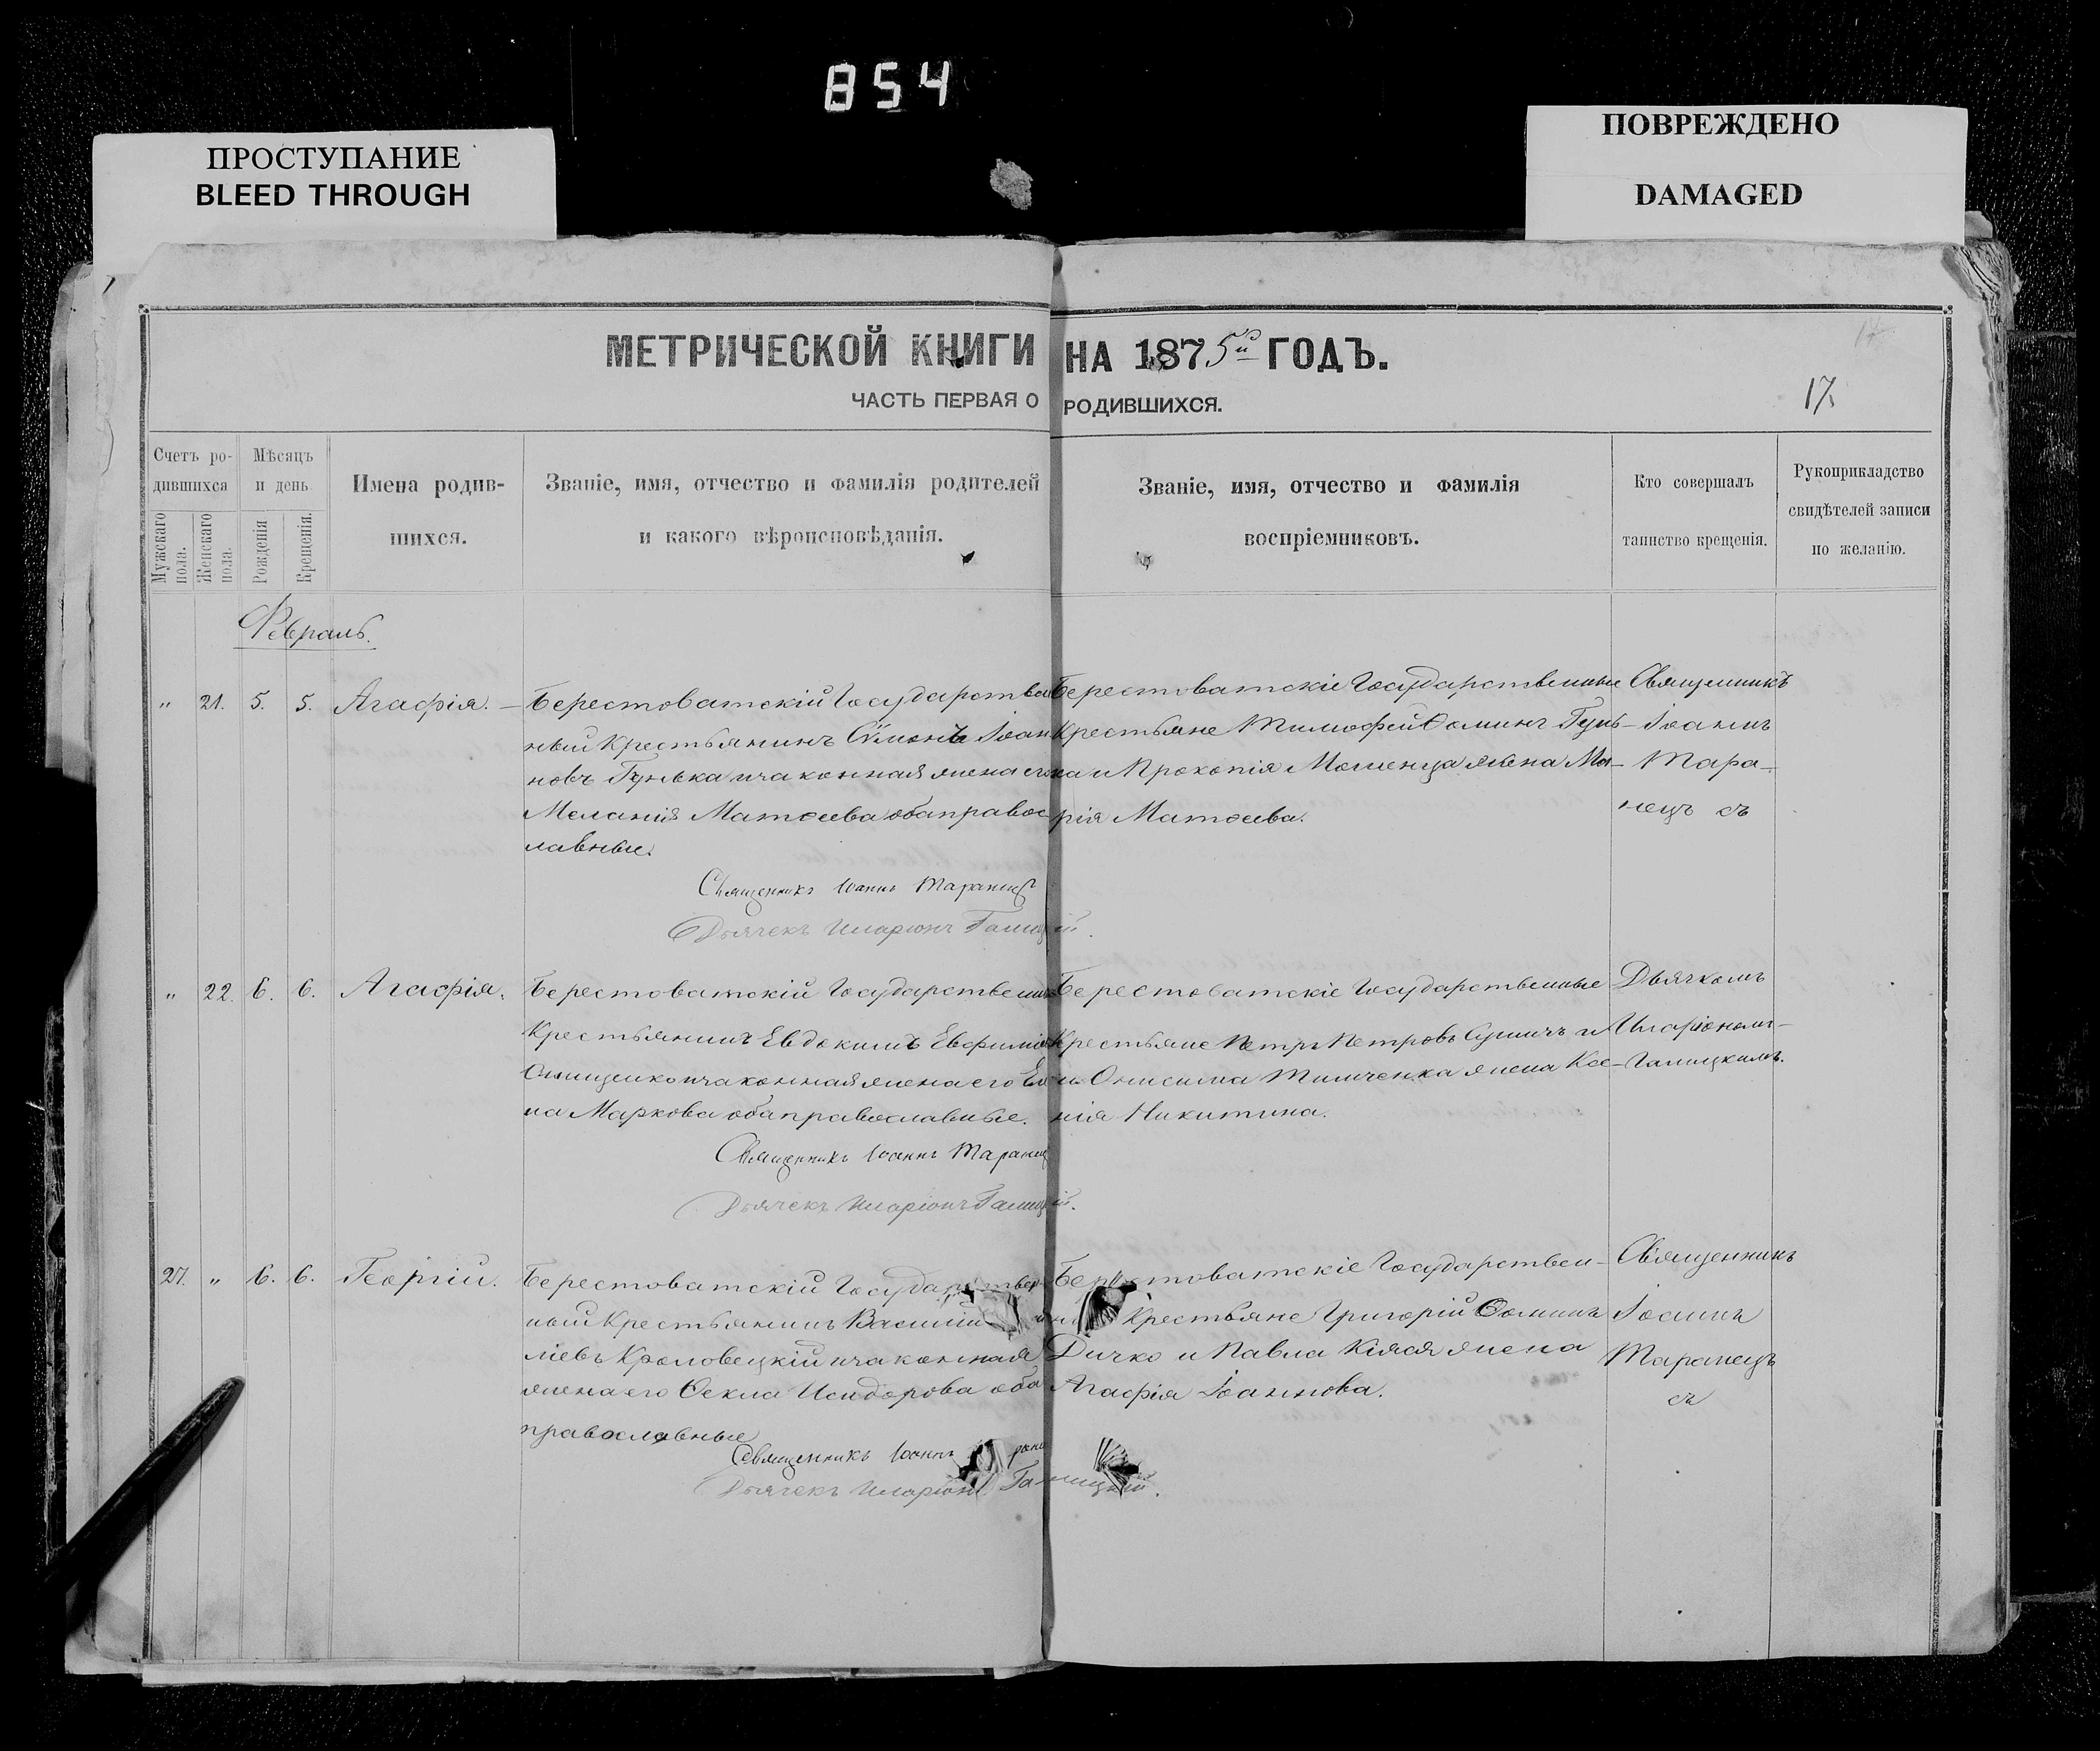 854
ПРОСТУПАНИЕ
BLEED THROUGH
ПОВРЕЖДЕНО
DAMAGED
МЕТРИЧЕСКОЙ КНИГИ НА 1875й ГОДЪ.
ЧАСТЬ ПЕРВАЯ О РОДИВШИХСЯ.
17.
Счетъ ро-
дившихся
Мужскаго пола.
Женскаго пола.
Мѣсяцъ
и день.
Рожденія
Крещенія.
Имена родив-
шихся.
Званіе, имя, отчество и фамилія родителей
и какого вѣроисповѣданія.
Званіе, имя, отчество и фамилія
воспріемниковъ.
Кто совершалъ
таинство крещенія.
Рукоприкладство
свидѣтелей записи
по желанію.
Февраль.
" 21. 5. 5. Агафія. —
Берестоватскій Государствен
ный Крестьянинъ Сѵмеонъ Іоан
новъ Гунька и законная жена его
Меланія Матѳеева оба правос
лавные.
Священникъ Іоаннъ Таранец
Дьячекъ Иларіонъ Галицкій.
Берестоватскіе Государственные
Крестьяне Тимофей Ѳоминъ Гунь-
ка и Прокопія жена Ма-
рія Матѳеева.
Священникъ
Іоаннъ
Тара-
нецъ съ
" 22. 6. 6. Агафія.
Берестоватскій Государственный
Крестьянинъ Евдокимъ Евфиміевъ
и законная жена его
на Маркова оба православные.
Священникъ Іоаннъ Таранец
Дьячекъ Иларіонъ Галицкій.
Берестоватскіе Государственные
Крестьяне Петръ Петровъ и
Онисима жена Ксе-
нія Никитина.
Дьячкомъ
Иларіономъ
Галицкимъ.
27. " 6. 6. Георгій.
Берестоватскій Государствен-
ный Крестьянинъ Василій
ліевъ Кроловецкій и законная
жена его Ѳекла Исидорова оба
православные
Священникъ Іоаннъ
Дьячекъ Иларіонъ Галицкій.
Берестоватскіе Государствен-
ные Крестьяне Григорій Ѳоминъ
Дичко и Павла жена
Агафія Іоаннова.
Священникъ
Іоаннъ
Таранецъ
съ